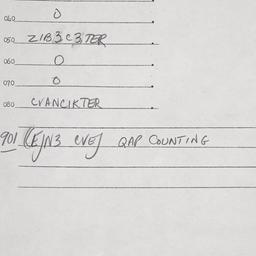 040 0
050 ZIB3C3TER
060 0
070 0
080 CVANCIKTER
901 (EJN3 CVEJ QAP COUNTING